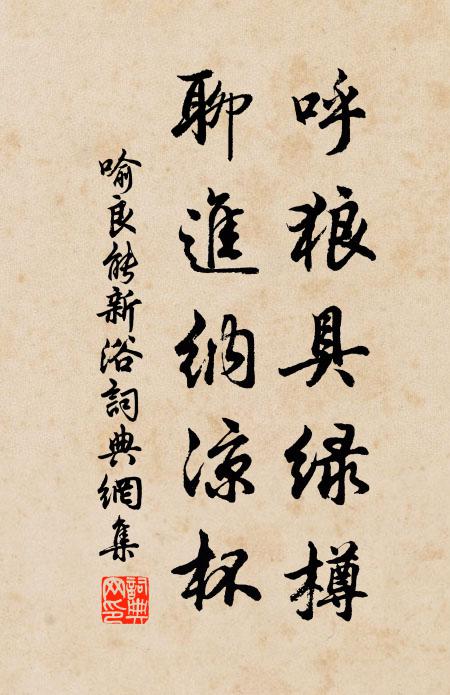 呼狼具绿樽
聊進纳涼杯
喻良能新浴詞典網集
詞典网印